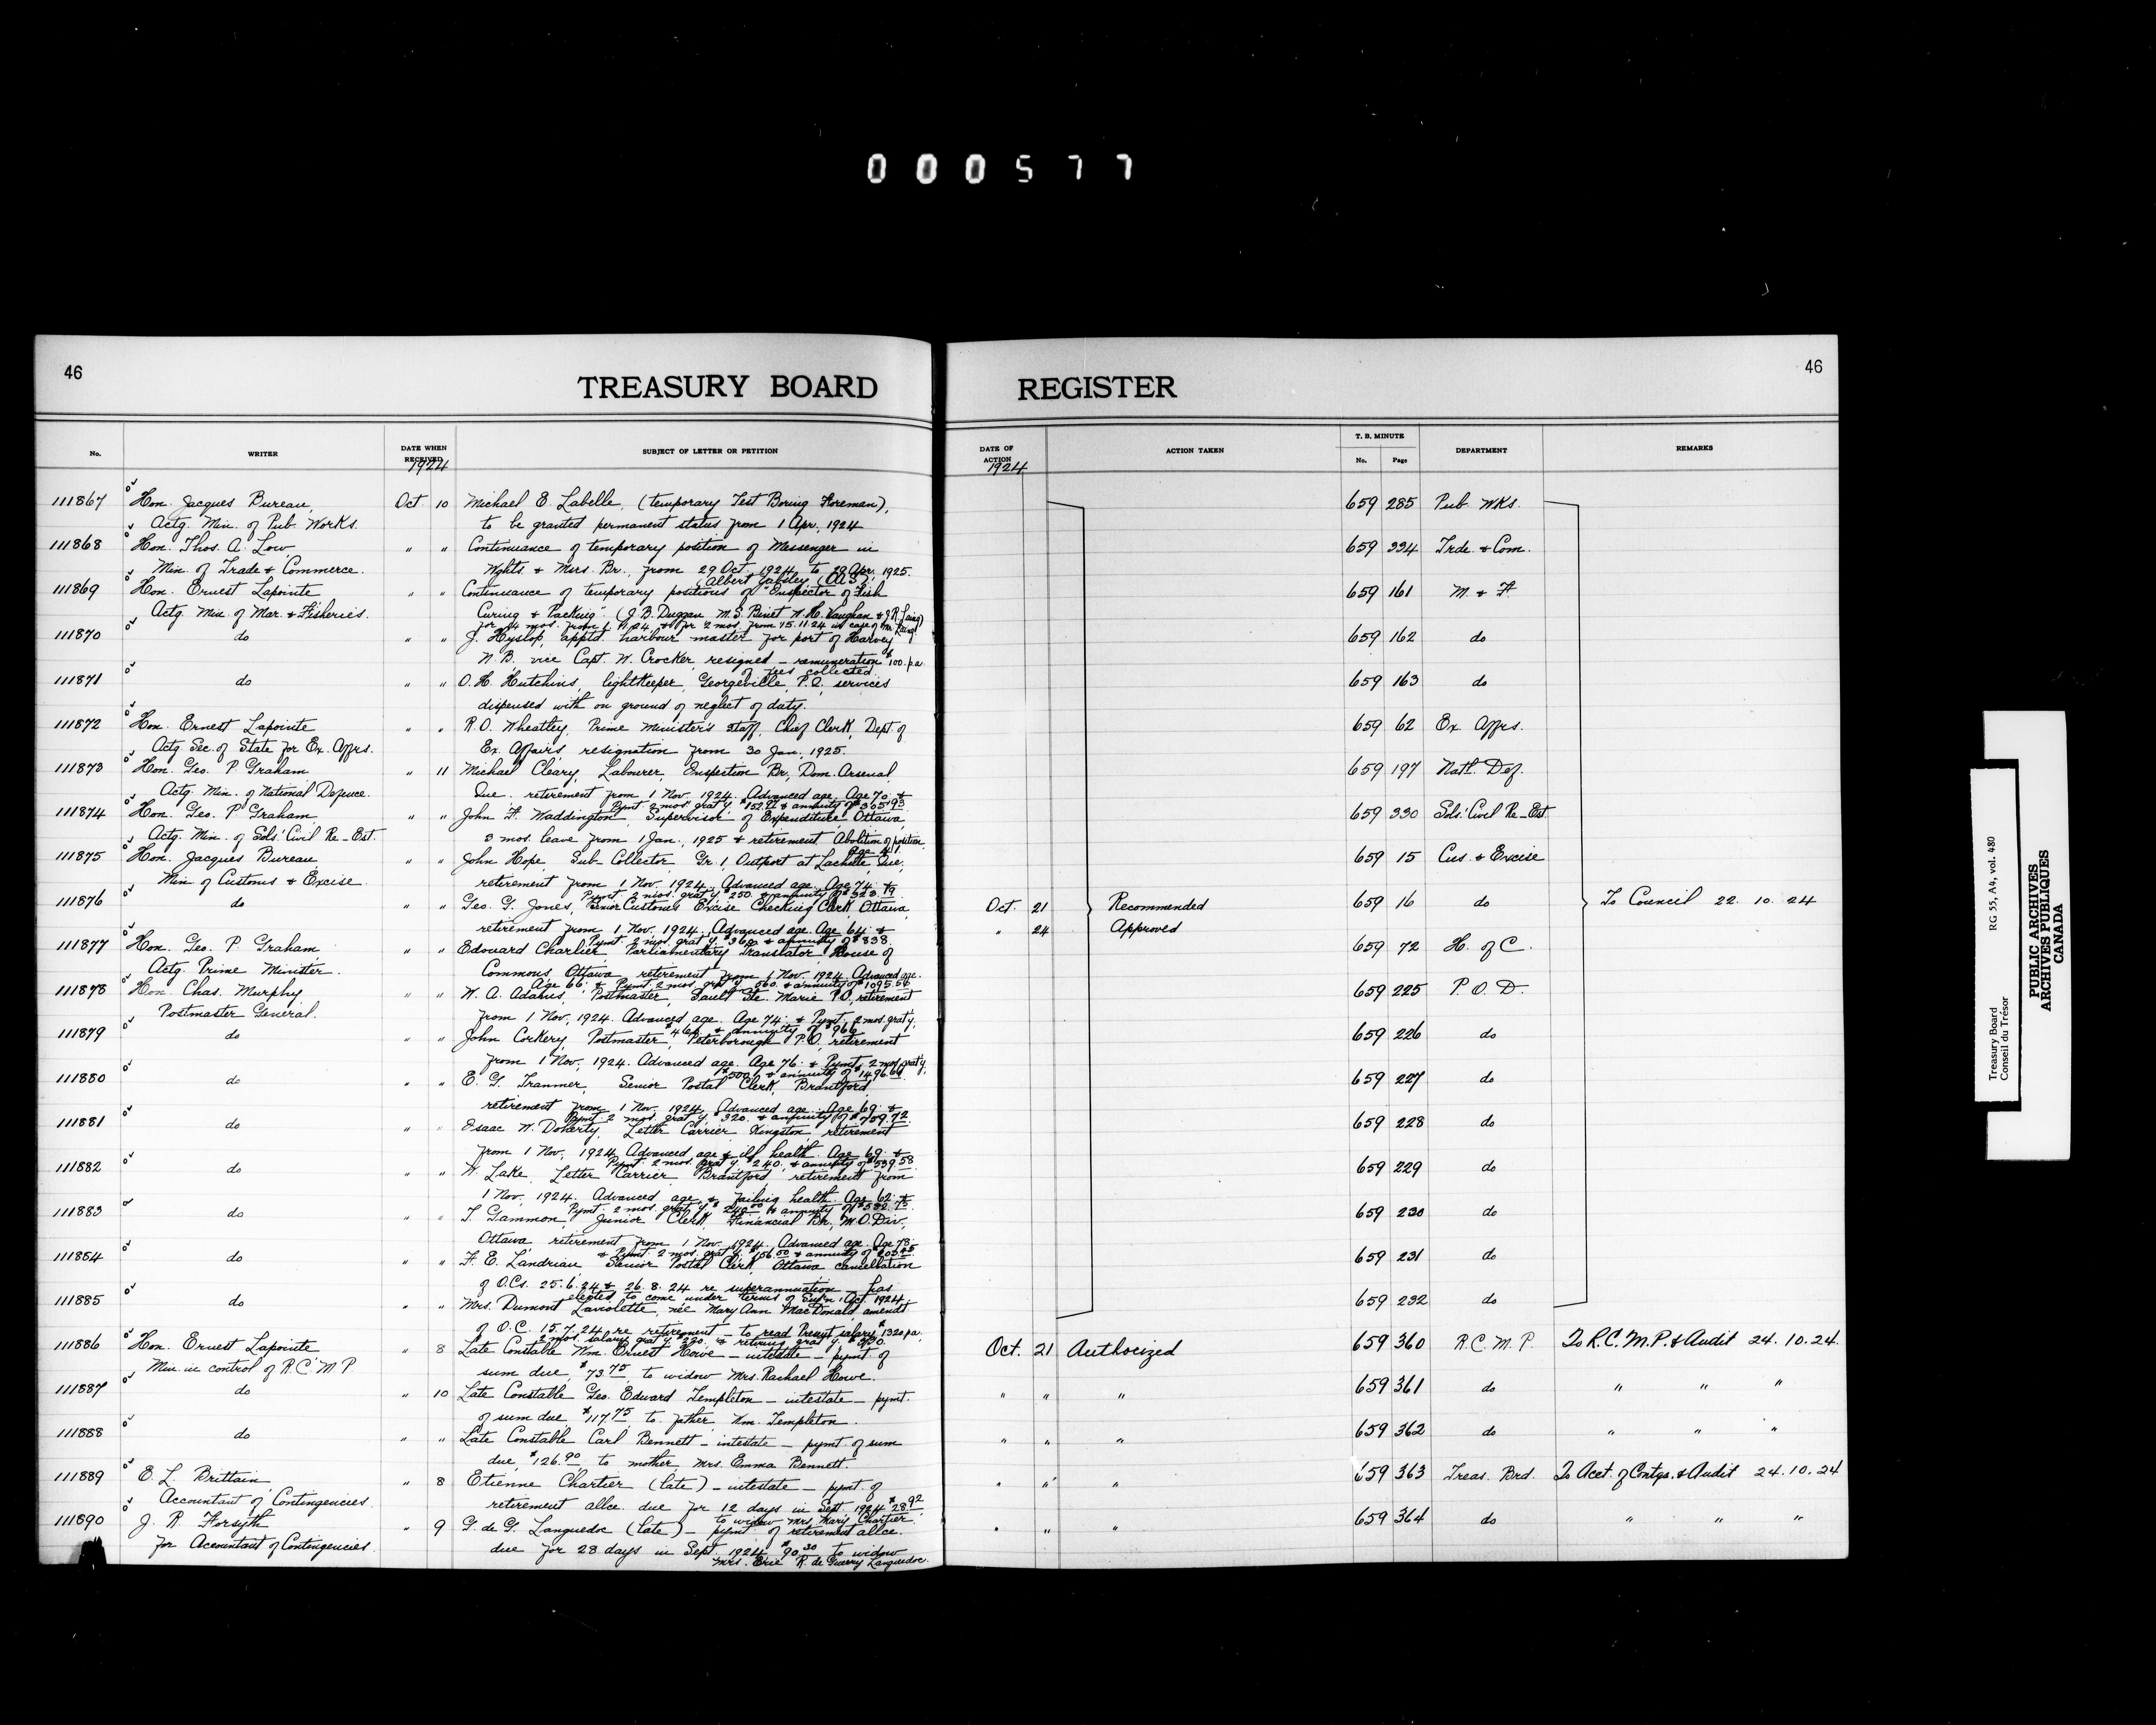 000577
46
TREASURY BOARD
No.
WRITER
DATE WHEN RECEIVED
1924
SUBJECT OF LETTER OR PETITION
111867 Hon. Jacques Bureau, Oct. 10 Michael E. Labelle, (temporary Test Boring Foreman),
Actg. Min. of Pub. Works. to be granted permanent status from 1 Apr., 1924
111868 Hon. Thos. A. Low, " " Continuance of temporary position of Messenger in
Min. of Trade & Commerce. Wghts. & Msrs. Br., from 29 Oct. 1924 to 28 Apr. 1925.
(Albert
111869 Hon. Ernest Lapointe " " Continuance of temporary positions of "Inspector of Fish
Actg. Min. of Mar. & Fisheries. Curing & Packing". (J. B. Duggan M. S. Binet W. H. Vaughan & J. R. Laing)
for 4 mos. from 1.11.24 & for 2 mos. from 15.11.24 in case of Mr. Laing
111870 do " " J. Hyslop, apptd harbour master for port of Harvey
N. B. vice Capt. W. Crocker, resigned – remuneration $100. p.a.
of fees collected
111871 do " " O. H. Hutchins, lightkeeper, Georgeville, P.Q., services
dispensed with on ground of neglect of duty.
111872 Hon. Ernest Lapointe " " R. O. Wheatley, Prime Minister's Staff, Chief Clerk, Dept. of
Actg Sec. of State for Ex. Affrs. Ex. Affairs, resignation from 30 Jan., 1925.
111873 Hon. Geo. P. Graham " 11 Michael Cleary, Labourer, Inspection Br., Dom. Arsenal,
Actg. Min. of National Defence. Que. retirement from 1 Nov. 1924. Advanced age. Age 70. &
Pymt 2 mos. grat'y. $152.97 & annuity of $305.93
111874 Hon. Geo. P. Graham, " " John F. Waddington, Supervisor of Expenditure Ottawa,
Actg. Min. of Sols.' Civil Re-Est. 3 mos. leave from 1 Jan., 1925 & retirement. Abolition of position.
Age 41.
111875 Hon. Jacques Bureau, " " John Hope, Sub-Collector, Gr. 1, Outport at Lachute, Que.,
Min. of Customs & Excise. retirement from 1 Nov. 1924. Advanced age. Age 74. &
Pymt. 2 mos. grat'y. $250. & annuity of
111876 do " " Geo. G. Jones, Senior Customs Excise Checking Clerk, Ottawa,
retirement from 1 Nov. 1924. Advanced age. Age 64. &
Pymt. 2 mos. grat'y. $360 & annuity of $838.
111877 Hon. Geo. P. Graham " " Edouard Charlier, Parliamentary Translator, House of
Actg. Prime Minister. Commons, Ottawa retirement from 1 Nov. 1924. Advanced age.
Age 66. & Pymt. 2 mos. grat'y. $560. & annuity of $1095.56
111878 Hon. Chas. Murphy " " W. A. Adams, Postmaster, Sault Ste. Marie P.O., retirement
Postmaster General. from 1 Nov., 1924. Advanced age. Age 74. & Pymt. 2 mos. grat'y.
& annuity of
111879 do " " John Corkery, Postmaster, Peterborough P.O. retirement
from 1 Nov., 1924. Advanced age. Age 76. & Pymt. 2 mos. grat'y.
$500. & annuity of
111880 do " " E. G. Tranmer, Senior Postal Clerk, Brantford,
retirement from 1 Nov. 1924. Advanced age. Age 69. &
Pymt. 2 mos. grat'y. $320. & annuity of $709.72
111881 do " " Isaac W. Doherty, Letter Carrier, Kingston, retirement
from 1 Nov., 1924. Advanced age & ill health. Age 69. &
Pymt. 2 mos. grat'y. $240. & annuity of $539.58
111882 do " " W. Lake, Letter Carrier Brantford retirement from
1 Nov. 1924. Advanced age & failing health. Age 62. &
Pymt. 2 mos. grat'y. $240.00 & annuity of
111883 do " " T. Gammon, Junior Clerk, Financial Br., M.O. Div.,
Ottawa retirement from 1 Nov. 1924. Advanced age. Age 78.
& Pymt. 2 mos. grat'y. $156.00 & annuity of
111884 do " " F. E. Landriau Senior Postal Clerk Ottawa cancellation
of O.Cs. 25.6.24 & 26.8.24 re superannuation has
elected to come under terms of Sup'n. Act. 1924.
111885 do " " Mrs. Dumont Laviolette, née Mary Ann MacDonald, amendt.
of O.C. 15.7.24 re retirement – to read Present salary $1320 pa.
2 mos. salary grat'y. $220. & retiring grat'y.
111886 Hon. Ernest Lapointe " 8 Late Constable Wm. Ernest Howe – intestate – pymt. of
Min. in control of R.C.M.P. sum due, $73.75, to widow Mrs. Rachael Howe.
111887 do " 10 Late Constable Geo. Edward Templeton – intestate – pymt.
of sum due $117.75 to father, Wm. Templeton.
111888 do " " Late Constable Carl Bennett – intestate – pymt. of sum
due, $126.90, to mother, Mrs. Emma Bennett.
111889 E. L. Brittain, " 8 Etienne Chartier (late) – intestate – pymt. of
Accountant of Contingencies. retirement allce. due for 12 days in Sept. 1924 $28.92
to widow Mrs. Marie Chartier.
111890 J. R. Forsyth " 9 G. de G. Languedoc (late) – pymt. of retirement allce.
for Accountant of Contingencies. due for 28 days in Sept. 1924 $90.30 to widow
Mrs. Erie R. de Guerry Languedoc.
REGISTER
46
DATE OF ACTION
1924
ACTION TAKEN
T. B. MINUTE
No.
Page
DEPARTMENT
REMARKS
659 285 Pub. Wks.
659 334 Trde. & Com.
659 161 M. & F.
659 162 do
659 163 do
659 62 Ex. Affrs.
659 197 Natl. Def.
659 330 Sols.' Civil Re-Est.
659 15 Cus. & Excise
Oct. 21 Recommended 659 16 do To Council 22. 10. 24
" 24 Approved
659 72 H. of C.
659 225 P. O. D.
659 226 do
659 227 do
659 228 do
659 229 do
659 230 do
659 231 do
659 232 do
Oct. 21 Authorized 659 360 R.C.M.P. To R.C.M.P. & Audit 24.10.24.
" " " 659 361 do " " "
" " " 659 362 do " " "
" " " 659 363 Treas. Brd. To Acct. of Contgs. & Audit 24.10.24
" " " 659 364 do " " "
Treasury Board
Conseil du Trésor
RG 55, A4, vol. 480
PUBLIC ARCHIVES
ARCHIVES PUBLIQUES
CANADA